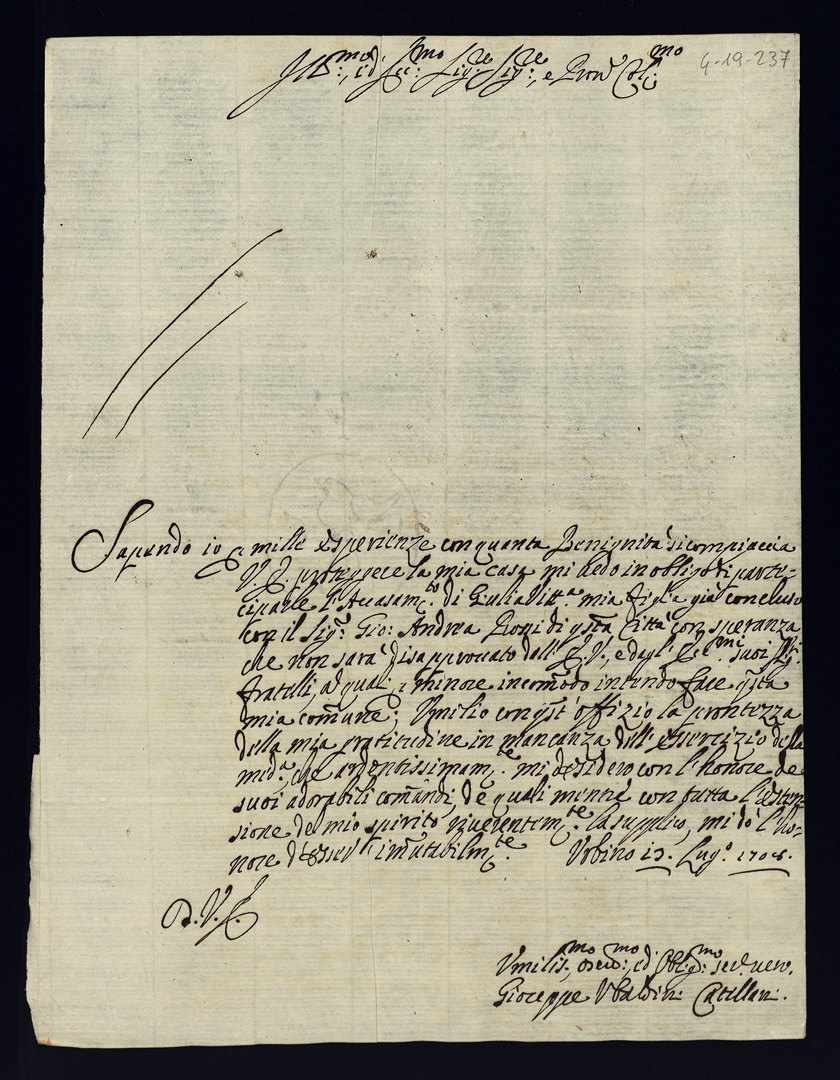 Ill:mo, ed Ecc:mo Sig:re Sig:re, e Pron Col:mo
4-19-237
Sapendo io p mille esperienze con quanta Benignità si compiaccia
V. E. proteggere la mia casa mi vedo in obligo di parte-
ciparle l'Accasam:to di Giulia Vitt:a mia figl:a già concluso
con il Sig:r Gio: Andrea di qsta Città con speranza
che non sarà disapprovato dall' E. V., e dagl' Ecc:mi suoi Sig:ri
fratelli, a quali, minore incomodo intendo fare qsta
mia comune; Umilio con qst' offizio la prontezza
della mia gratitudine in mancanza dell' essercizio della
med:a, che ardentissimam:te mi desidero con l'honore de
suoi adorabili comandi, de quali mentre con tutta l'esten-
sione de mio spirito riverentem:te la supplico, mi dò l'ho-
nore d'esser' immutabilm:te Urbino 13. Lug:o 1708.
D. V. E.
Umilis:mo, devo:mo, ed Obl:mo ser. vero.
Gioseppe Ubaldin: Catellan:.